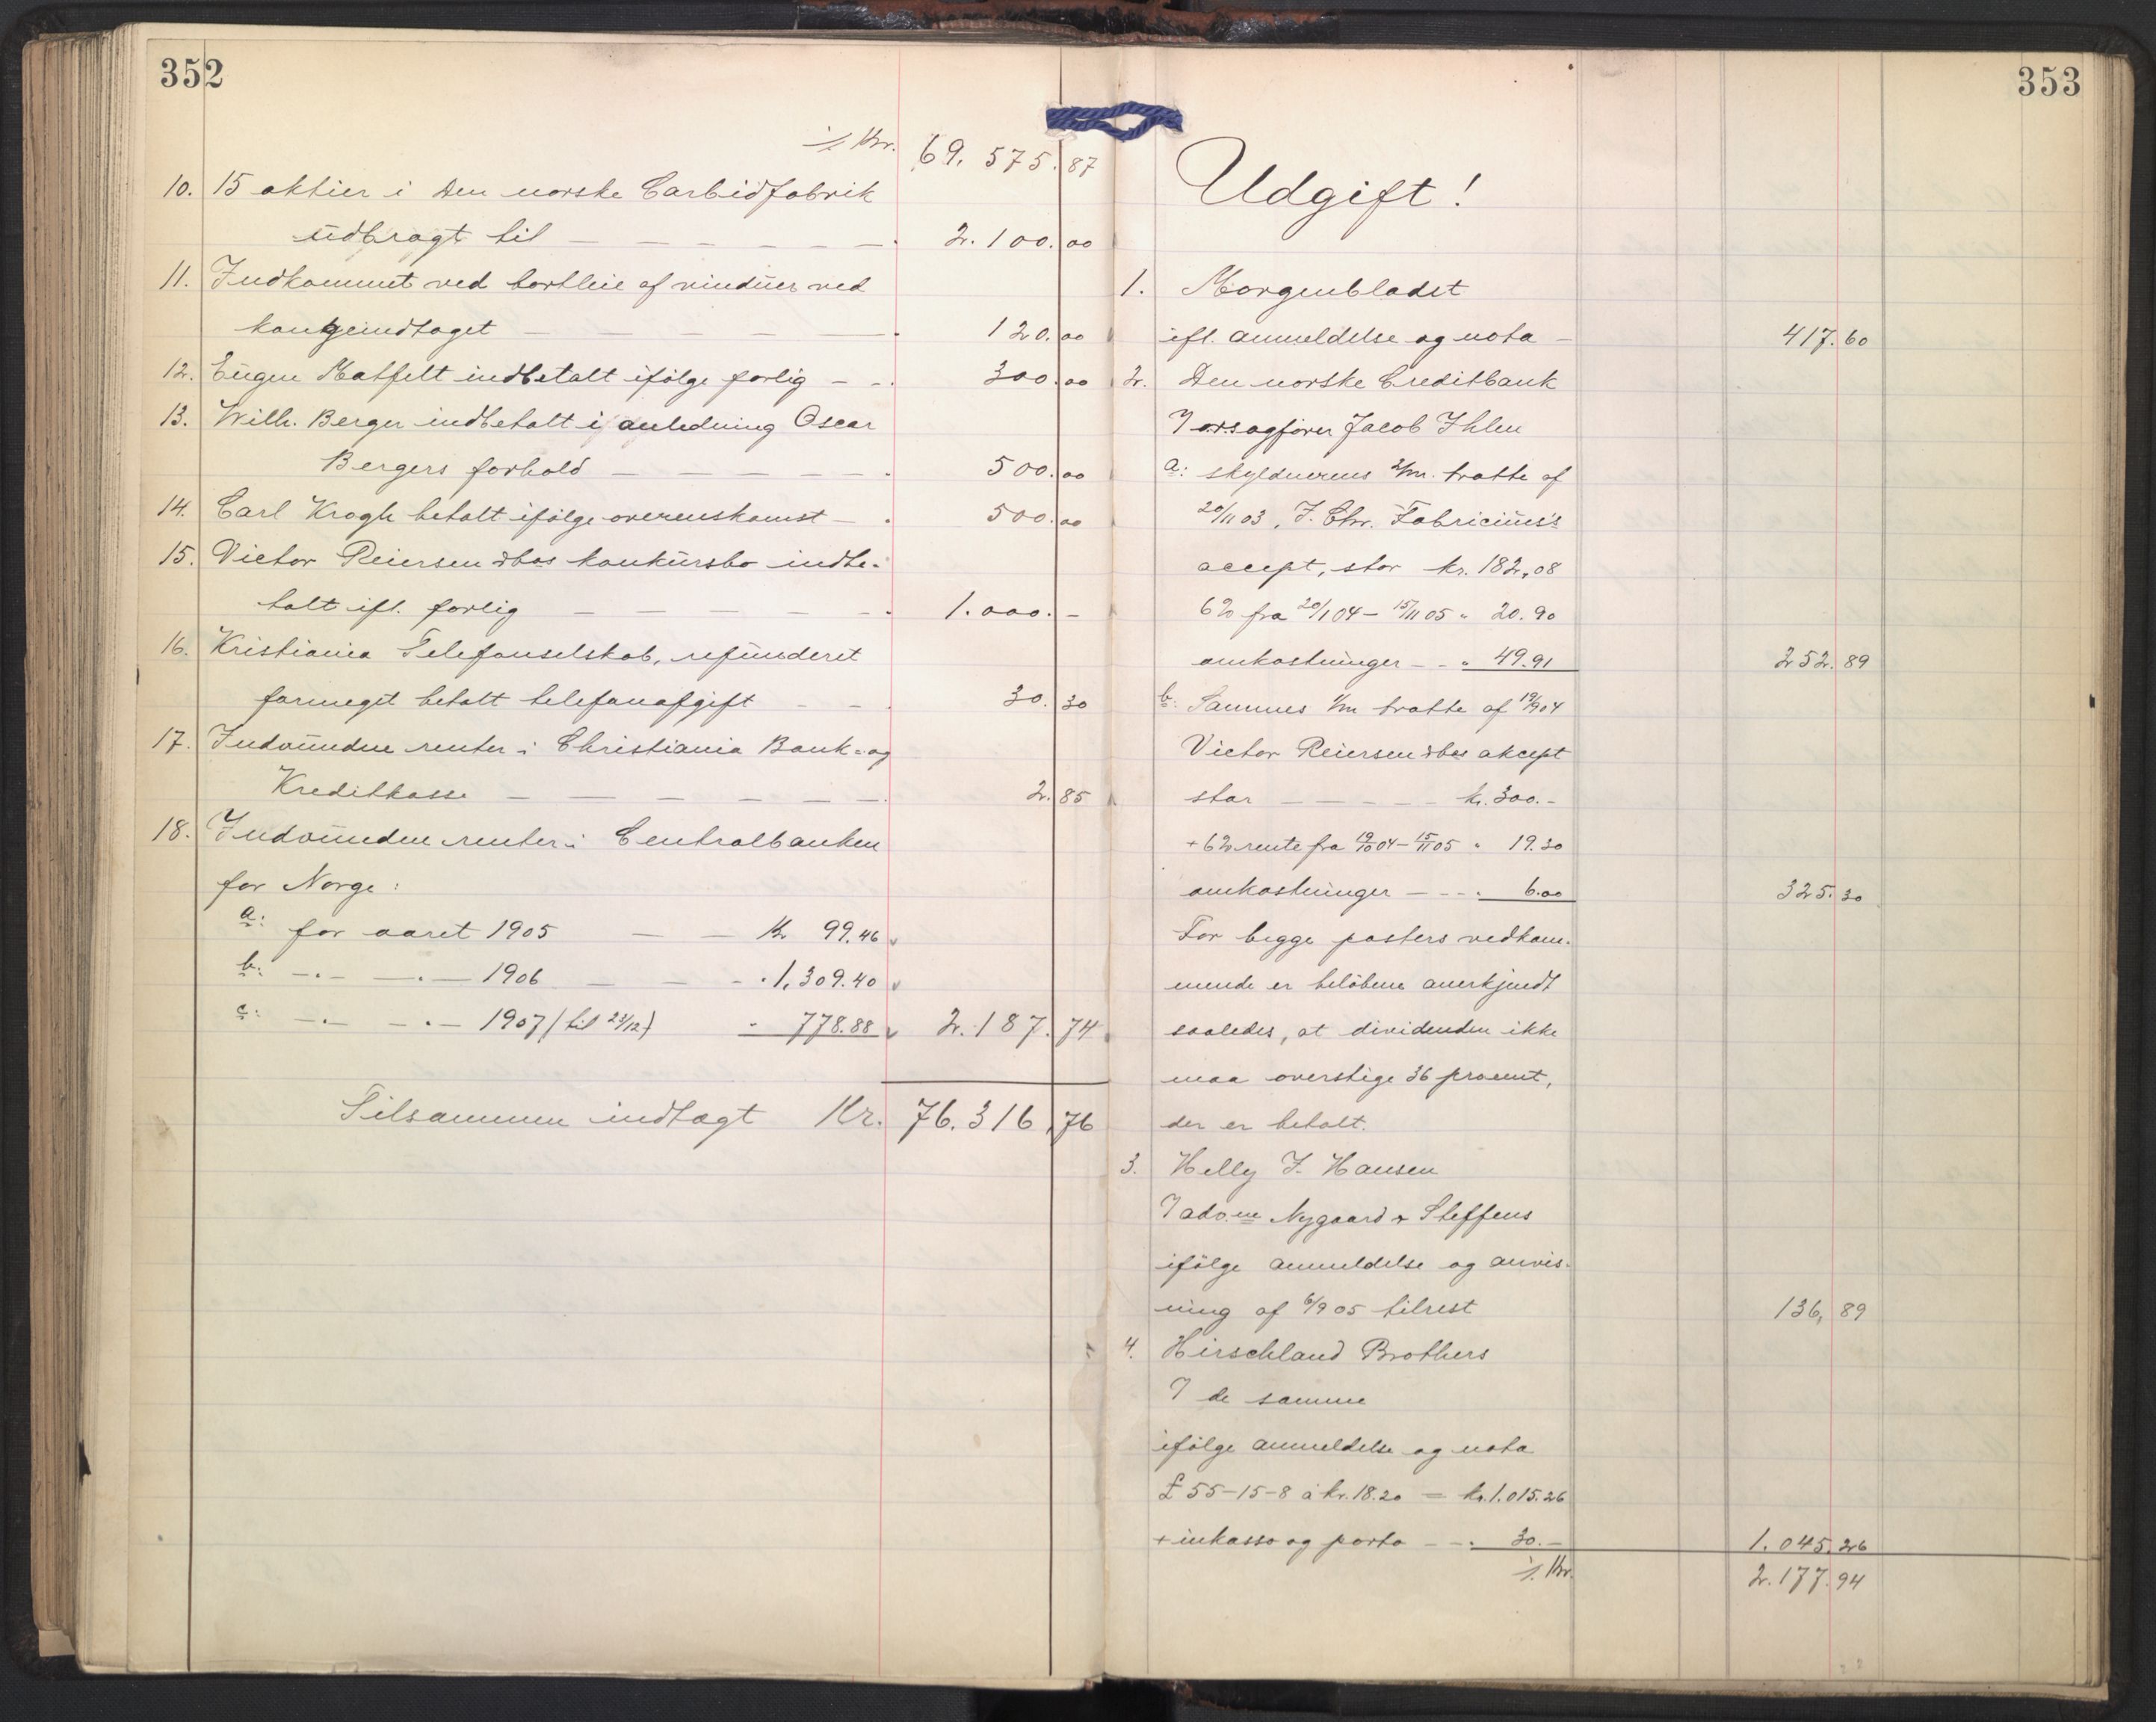 352
./. Kr. 69.575.87
10. 15 aktier i Den norske Carbidfabrik
udbragt til — — — — — — 2.100.00
11. Indkommet ved bortleie af vinduer ved
kongeindtoget — — — — — 120.00
12. Eugen Matfelt indbetalt ifølge forlig — - 300.00
13. Wilh. Berger indbetalt i anledning Oscar
Bergers forhold — — — — — 500.00
14. Carl Krogh betalt ifølge overenskomst — 500.00
15. Victor Reiersen dbos konkursbo indbe-
talt ifl. forlig — — — — — 1.000.-
16. Kristiania Telefonselskab, refunderet
formeget betalt telefonafgift - - 30.30
17. Indvundne renter i Christiania Bank- og
Kreditkasse — — — — — — 2.85
18. Indvundne renter i Centralbanken
for Norge:
a: for aaret 1905 — — Kr. 99.46
b: —.— —.— 1906 — — - 1,309.40
c: —.— —.— 1907 (til 23/12) - 778.88 2.187.74
Tilsammen indtagt Kr. 76.316.76
353
Udgift!
1. Morgenbladet
ifl. anmeldelse og nota — 417.60
2. Den norske Creditbank
/ orsagfører Jacob Ihlen
a: skyldnerens 2/m. tratte af
20/11 03, J. Chr. Fabricius's
accept, stor kr. 182,08
6% fra 20/1 04 – 15/11 05 " 20.90
omkostninger — - " 49.91 252.89
b: Sammes 1/m tratte af 19/9 04
Victor Reiersen dbos akcept
stor — — — — — kr. 300.-
+ 6% rente fra 19/10 04 – 15/11 05 " 19.30
omkostninger — - - " 6.00 325.30
For begge posters vedkom-
mende er beløbene anerkjendt
saaledes, at dividenden ikke
maa overstige 36 procent,
der er betalt.
3. Helly J. Hansen
/ adv.ne Nygaard & Steffens
ifølge anmeldelse og anvis-
ning af 6/9 05 tilrest 136,89
4. Hirschland Brothers
/ de samme
ifølge anmeldelse og nota
£ 55-15-8 à kr. 18.20 = kr. 1.015.26
+ inkasso og porto - - " 30.- 1.045.26
./. Kr. 2.177.94